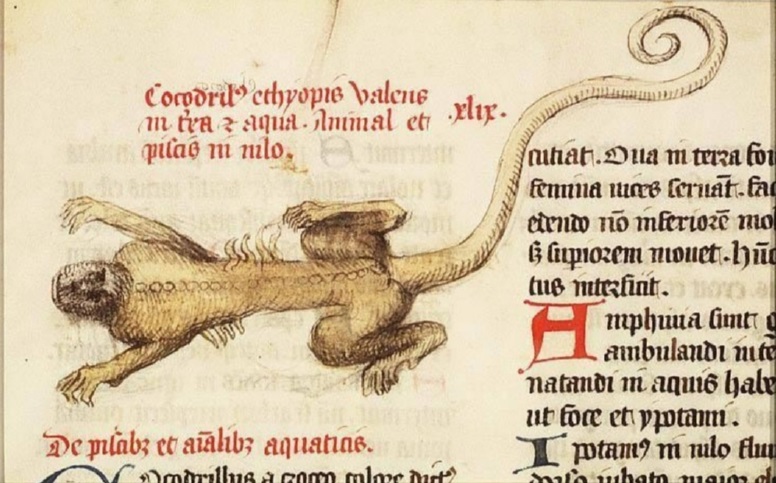 Cocodril⁹ ethyopis valens
in t̄ra ⁊ aqua. Animal et
piscis in nilo.
.xlix.
De piscibꝫ et aīalibꝫ aquaticis.
ocodrillus a croceo colore dict⁹
cutiat. Oua in terra fo
femina uices seruāt. fac
edendo nō inferiorē mo
sꝫ superiorem mouet. hūc
tus interficit.
Amphiuia sunt q
ambulandi in te
natandi in aquis habe
ut foce et ypotami.
Ipotam⁹ in nilo flu
dorso iubato